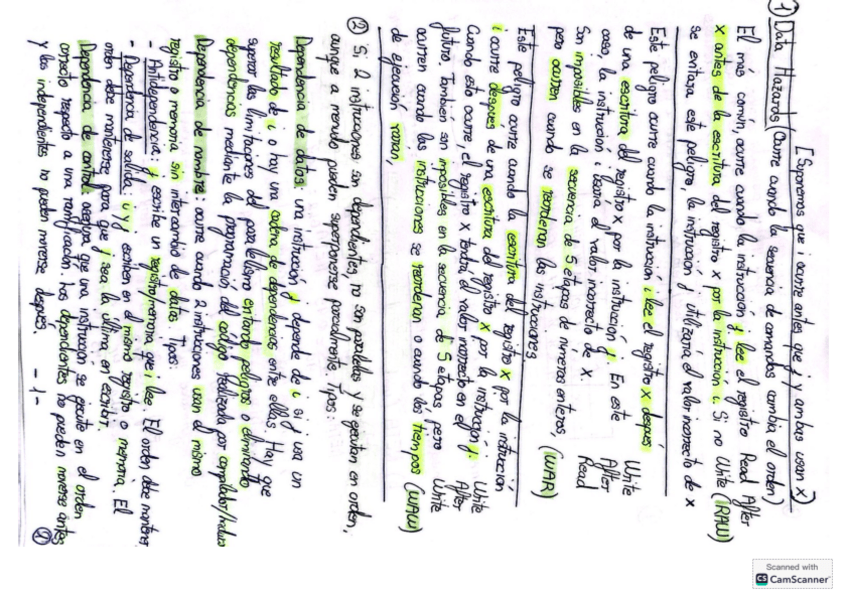 [Suponemos que i ocurre antes que j y ambas usan x]
① Data Hazards (Ocurre cuando la secuencia de comandos cambia el orden)
El más común, ocurre cuando la instrucción j lee el registro Read After
x antes de la escritura del registro x por la instrucción i. Si no Write (RAW)
se enfrasa este peligro, la instrucción j utilizará el valor incorrecto de x
Este peligro ocurre cuando la instrucción i lee el registro x después
de una escritura del registro x por la instrucción j. En este
caso, la instrucción i leería el valor incorrecto de x.
Son imposibles en la secuencia de 5 etapas de números enteros,
pero ocurren cuando se reordenan las instrucciones
Write
After
Read
(WAR)
Este peligro ocurre cuando la escritura del registro x por la instrucción
i ocurre después de una escritura del registro x por la instrucción j.
Cuando esto ocurre, el registro x tendrá el valor incorrecto en el
futuro. También son imposibles en la secuencia de 5 etapas pero
ocurren cuando las instrucciones se reordenan o cuando los tiempos
de ejecución varían,
Write
After
Write
(WAW)
② Si 2 instrucciones son dependientes, no son paralelas y se ejecutan en orden,
aunque a menudo pueden superponerse parcialmente, tipos:
Dependencia de datos: una instrucción j depende de i si j usa un
resultado de i o hay una cadena de dependencias entre ellas. Hay que
superar las limitaciones del paralelismo evitando peligros o eliminando
dependencias mediante la programación del código realizada por compilador/hardw
Dependencia de nombre: ocurre cuando 2 instrucciones usan el mismo
registro o memoria sin intercambio de datos. Tipos:
- Antidependencia: j escribe un registro/memoria que i lee. El orden debe mantener
- Dependencia de salida: i y j escriben en el mismo registro o memoria. El
orden debe mantenerse para que j sea la última en escribir.
Dependencia de control: asegura que una instrucción se ejecute en el orden
correcto respecto a una ramificación. Las dependientes no pueden moverse antes
y las independientes no pueden moverse después.
- 1 -
①
Scanned with
CS CamScanner